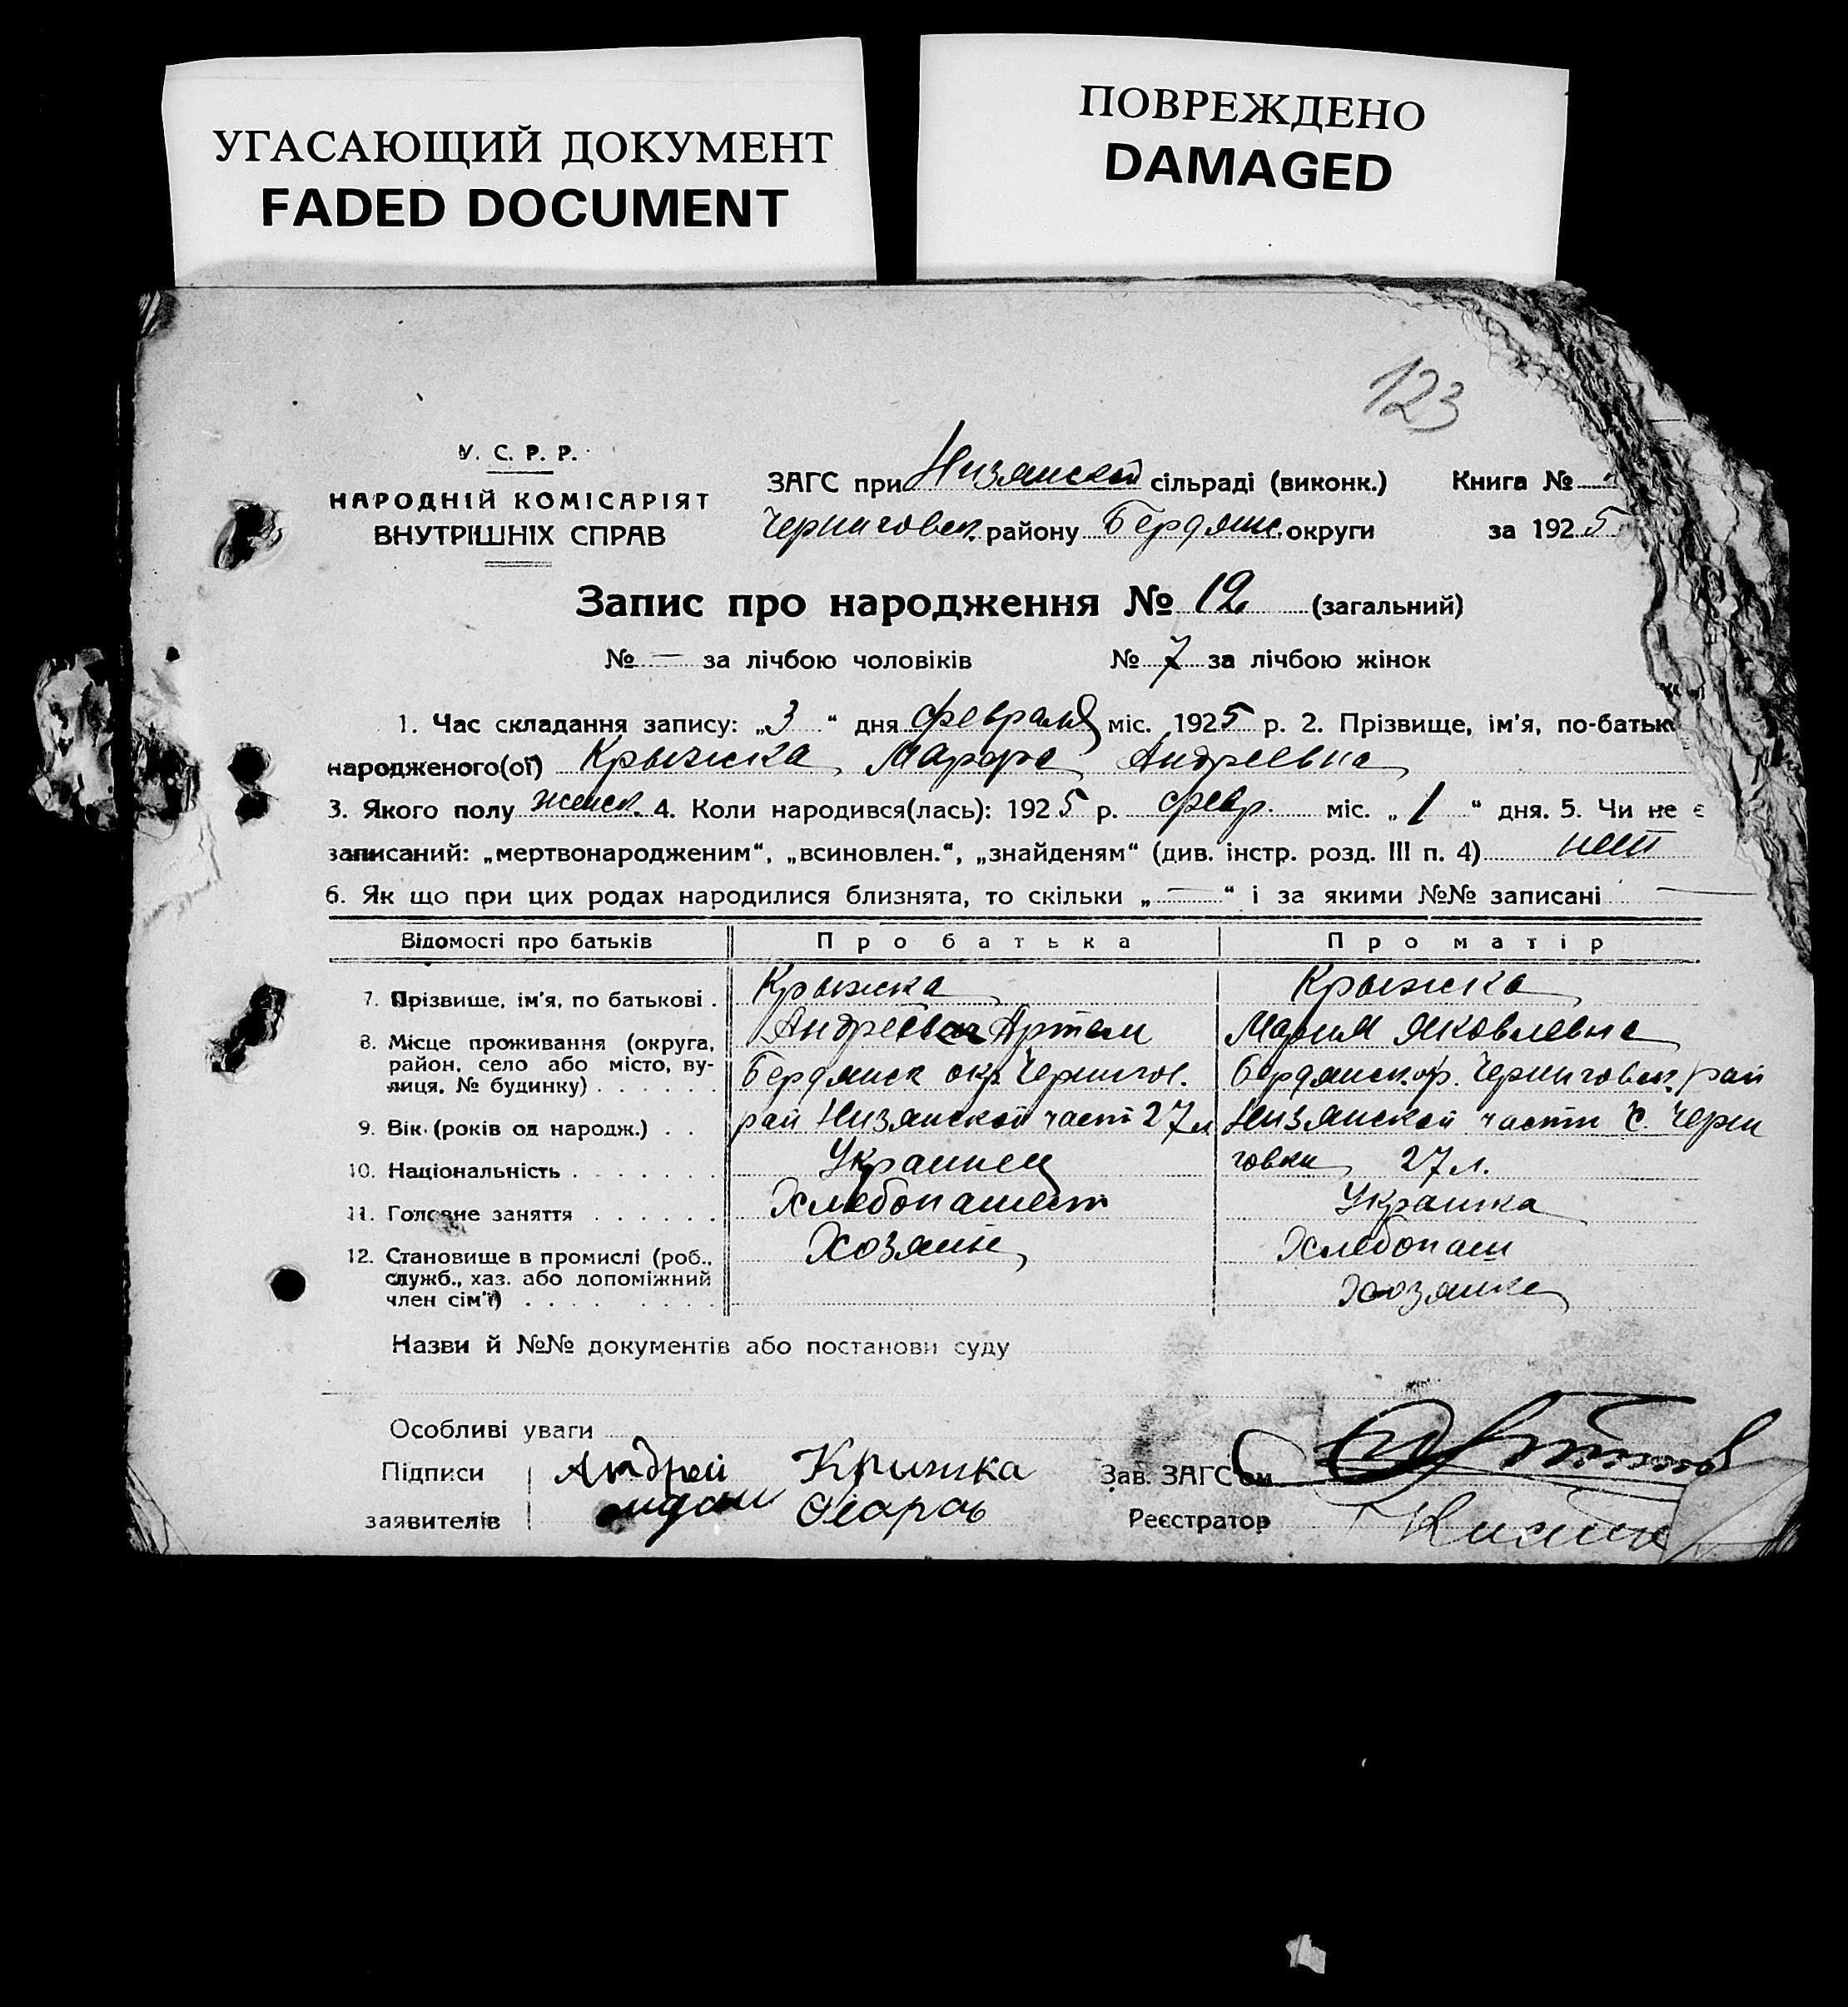 УГАСАЮЩИЙ ДОКУМЕНТ
FADED DOCUMENT
ПОВРЕЖДЕНО
DAMAGED
123
У. С. Р. Р.
НАРОДНІЙ КОМІСАРІЯТ
ВНУТРІШНІХ СПРАВ
ЗАГС при Низянской сільраді (виконк.) Книга №
Черниговск. району Бердянс. округи за 1925
Запис про народження № 12 (загальний)
№ — за лічбою чоловіків № 7 за лічбою жінок
1. Час складання запису: „3“ дня февраля міс. 1925 р. 2. Прізвище, ім'я, по-батьк
народженого(ої) Крыжка Марфа Андреевна
3. Якого полу женск. 4. Коли народився(лась): 1925 р. февр. міс. „1“ дня. 5. Чи не є
записаний: „мертвонародженим“, „всиновлен.“, „знайденям“ (див. інстр. розд. III п. 4) нет
6. Як що при цих родах народилися близнята, то скільки „—“ і за якими №№ записані —
Відомості про батьків Про батька Про матір
7. Прізвище, ім'я, по батькові . Крыжка Крыжка
8. Місце проживання (округа, район, село або місто, вулиця, № будинку) . . . . . Андрей Артем Мария Яковлевна
Бердянск окр. Чернигов. Бердянск. окр. Черниговск. рай
9. Вік (років од народж.) . . рай Низянской част 27 л Низянской части С. Черни
10. Національність . . . . . . . Украинец говки 27 л.
11. Головне заняття . . . . . . Хлебопашест Украинка
12. Становище в промислі (роб., служб., хаз. або допоміжний член сім'ї) . . . . . . . Хозяин Хлебопаш
Хозяйка
Назви й №№ документів або постанови суду
Особливі уваги
Підписи Андрей Крижка Зав. ЗАГС'ом
заявителів Реєстратор